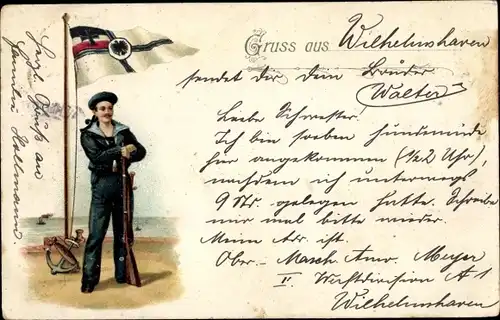 Gruss aus Wilhelmshaven
sendet dir dein Bruder
Walter
Liebe Schwester.
Ich bin soeben hundemüde
hier angekommen (1/2 2 Uhr),
nachdem ich unterwegs
9 Std. gelegen hatte. Schreibe
mir mal bitte wieder.
Meine Adr. ist.
Ober.- Masch. Anw. Meyer
II Werftdivision A 1
Wilhelmshaven
Herzl. Gruß an
Familie